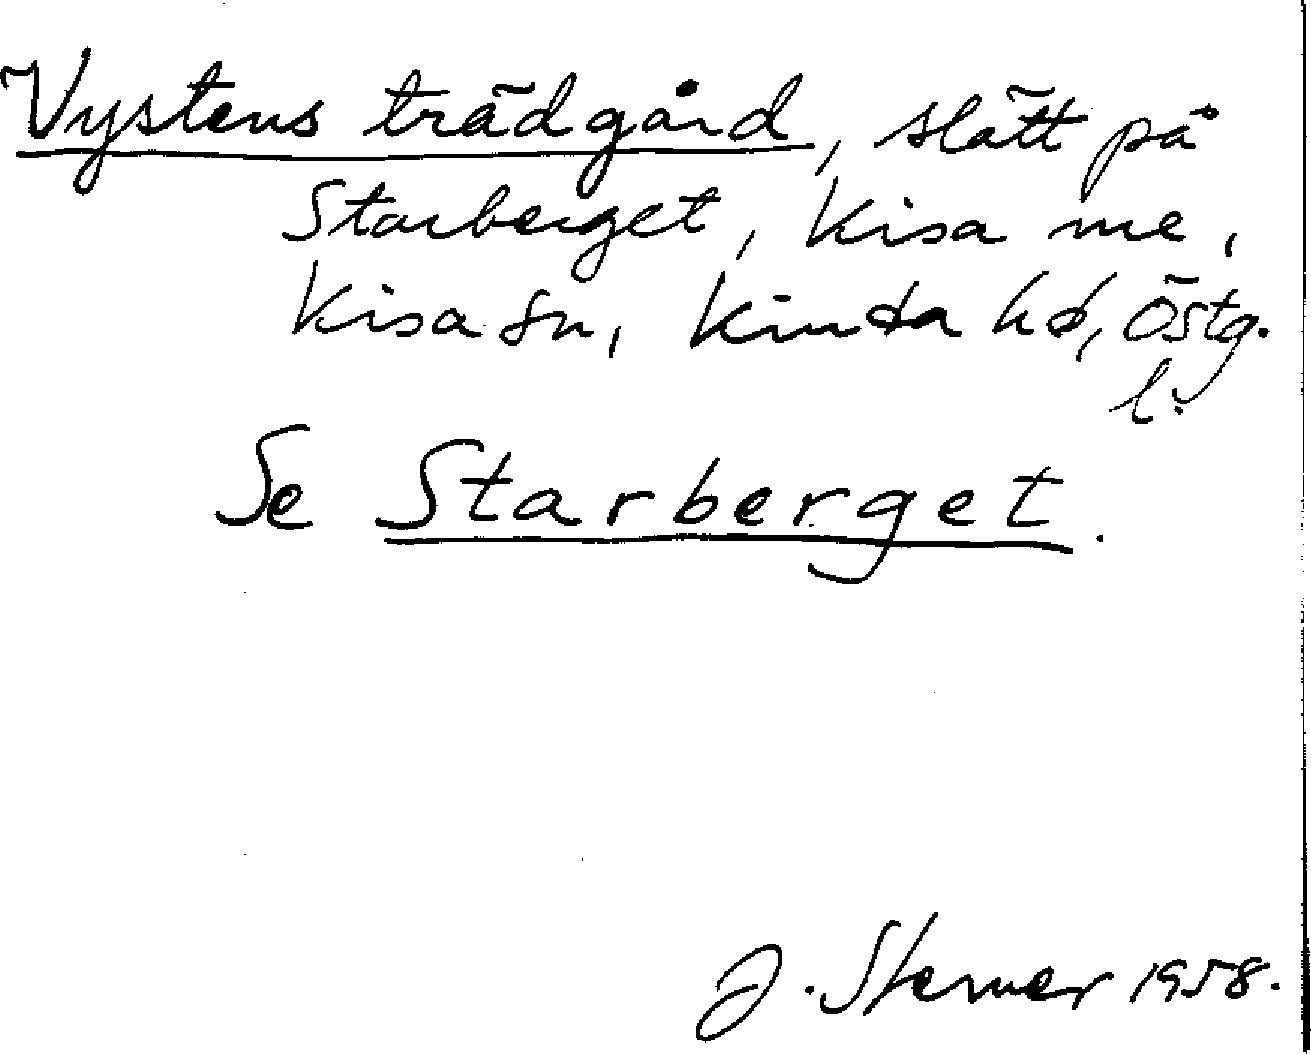 Vystens trädgård, slätt på
Starberget, Kisa me,
Kisa sn, Kinda hd, Östg.
l.
Se Starberget.
J. Sterner 1958.